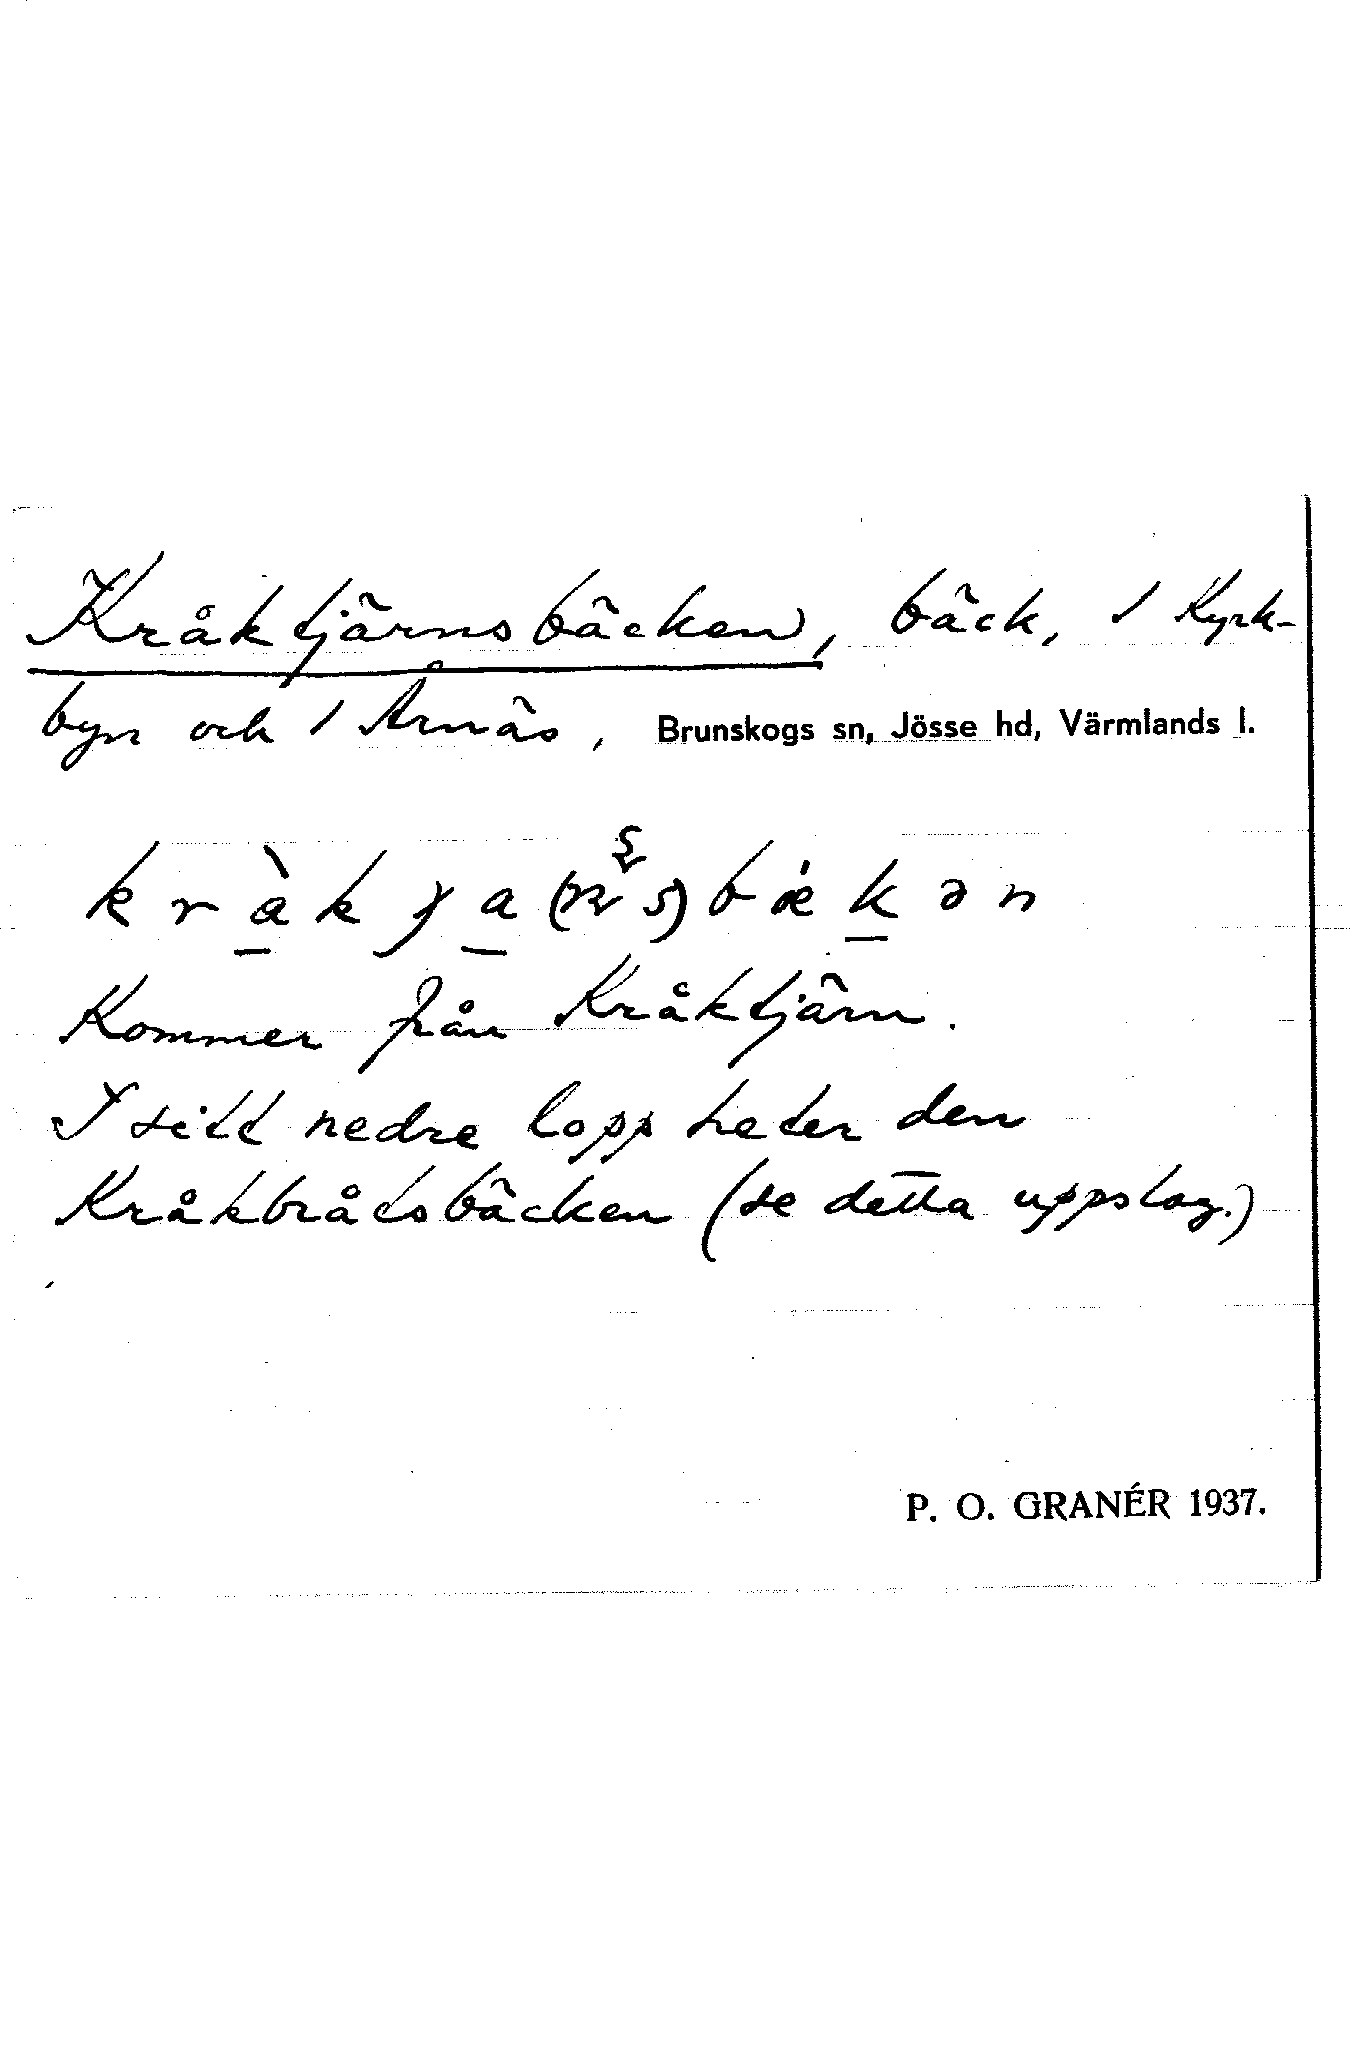 Kråktjärnsbäcken, bäck, / Kyrk-
byn och / Årnäs, Brunskogs sn, Jösse hd, Värmlands l.
Kommer från Kråktjärn.
I sitt nedre lopp heter den
Kråkbråtsbäcken (se detta uppslag.)
P. O. GRANÉR 1937.